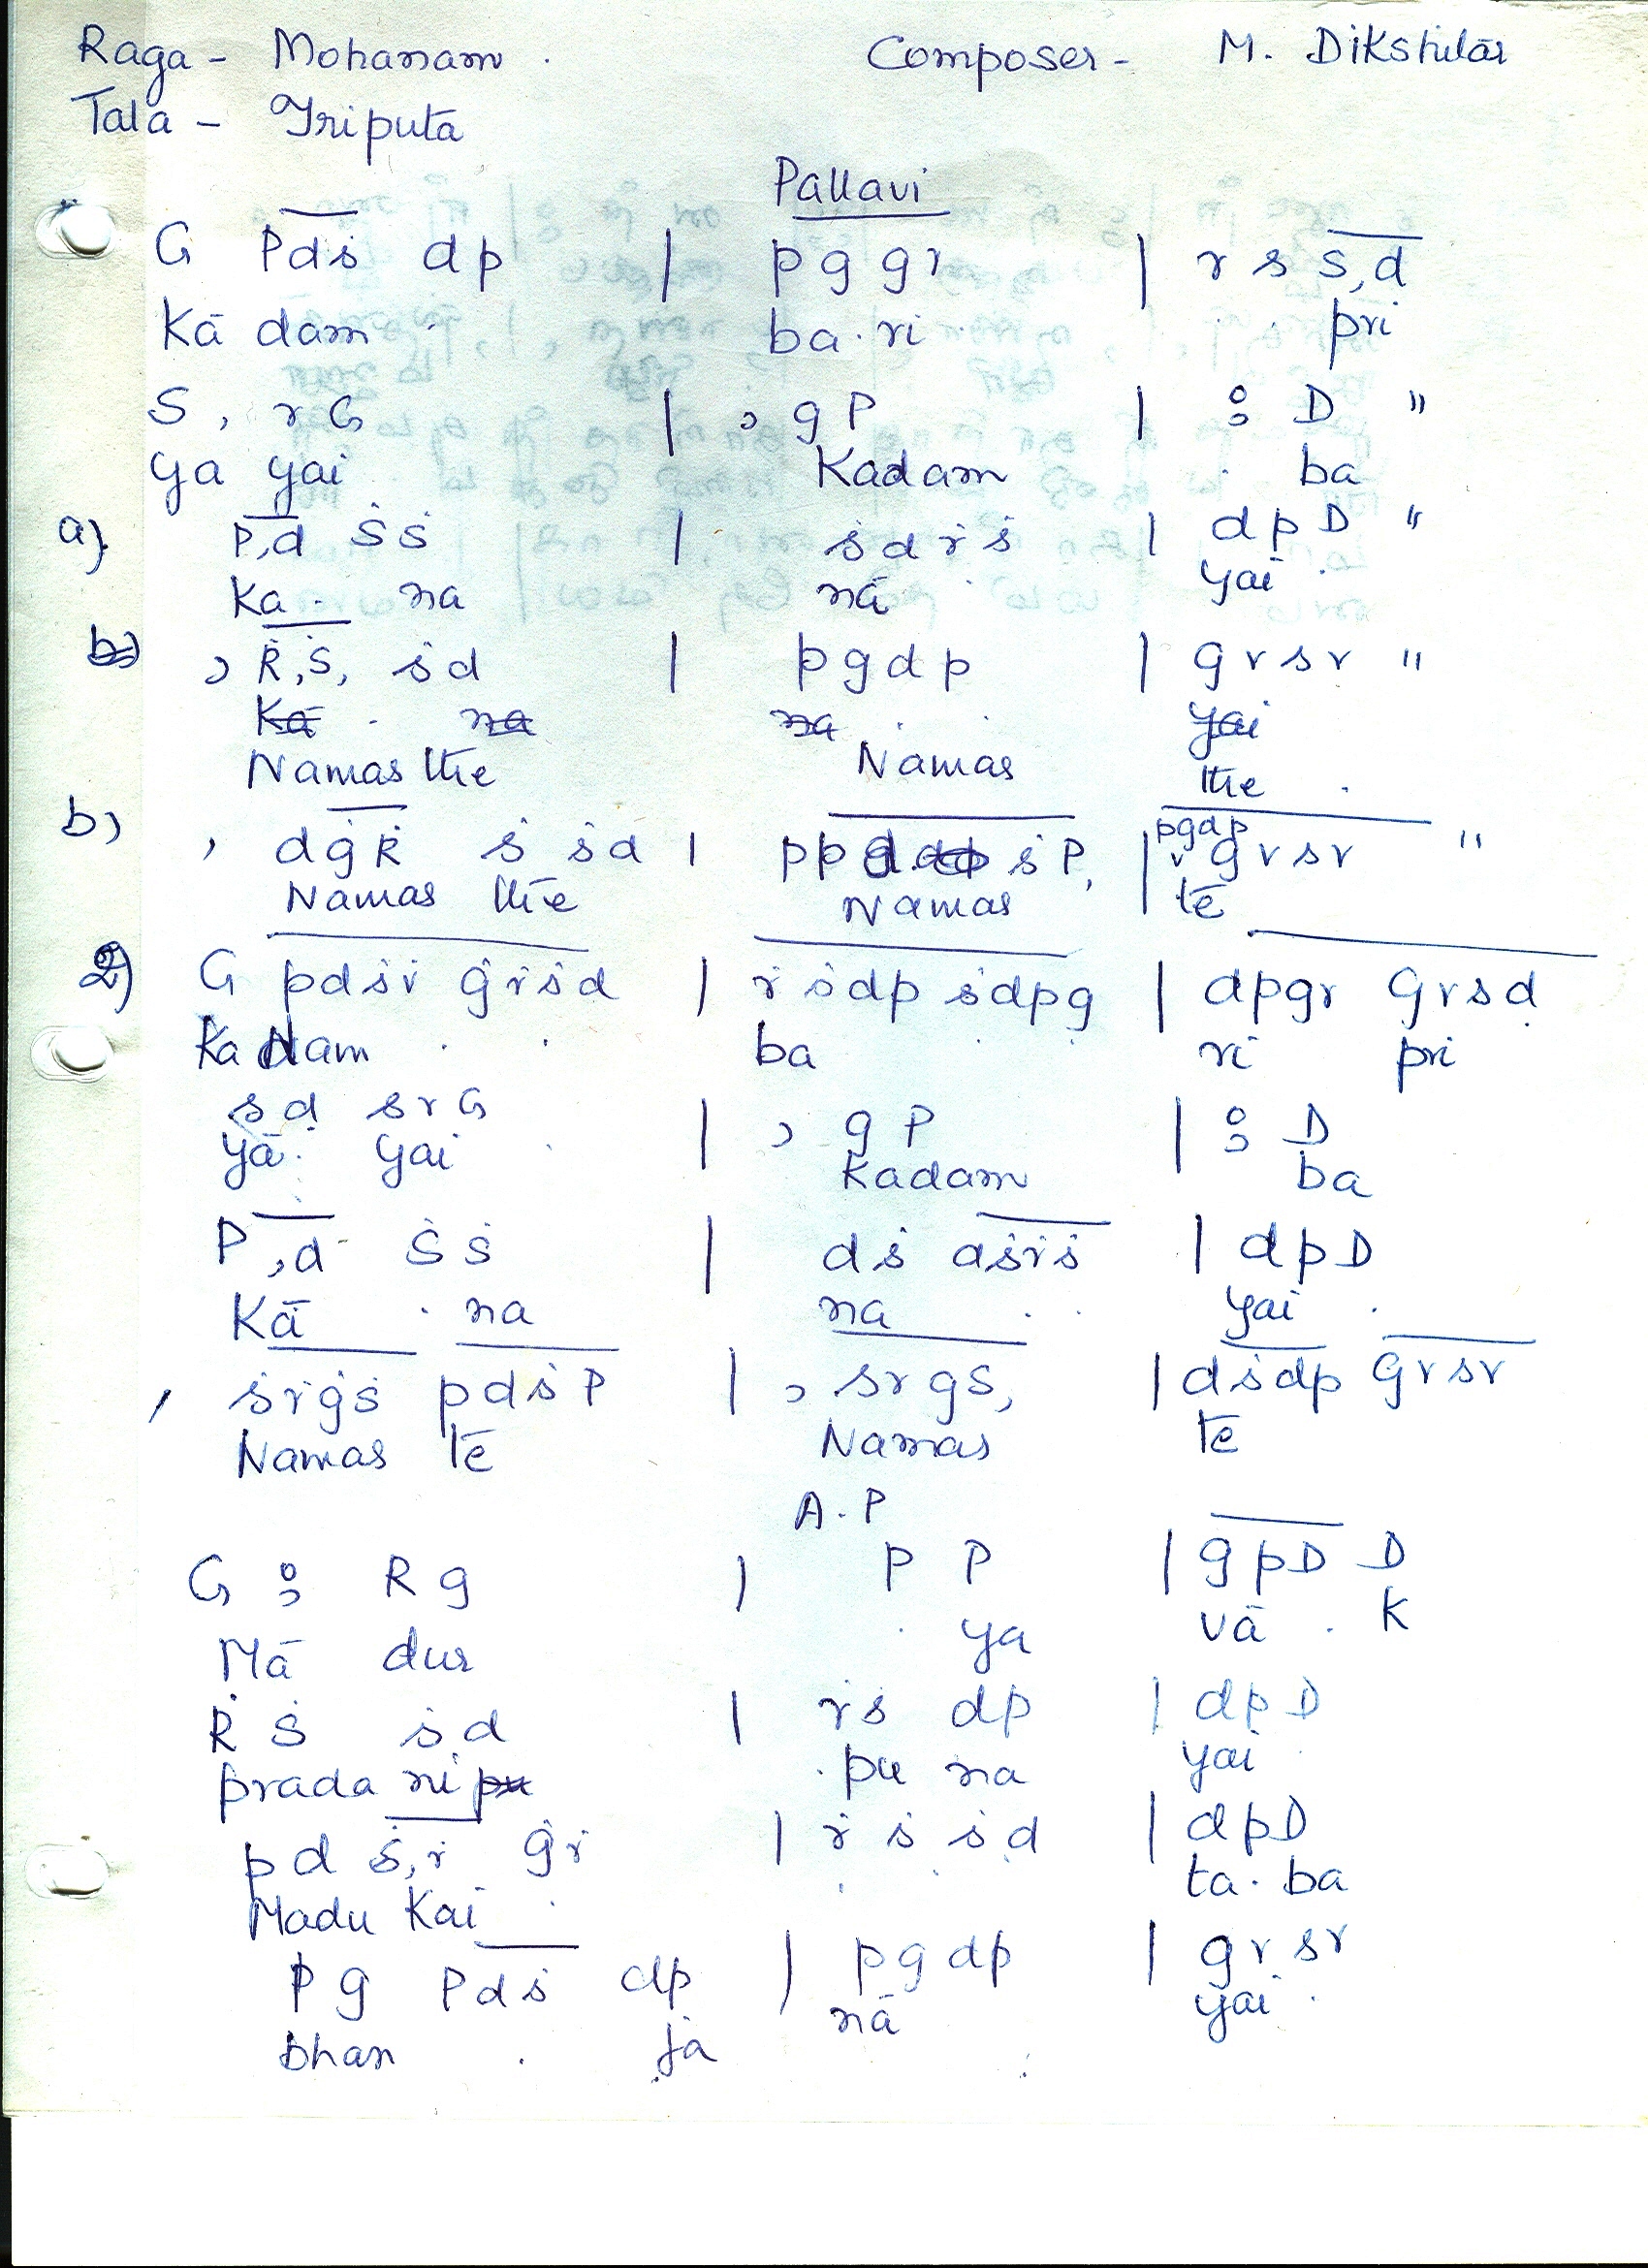 Raga - Mohanam . Composer - M. Dikshitār
Tala - Triputa
Pallavi
G Pdṡ dp | p g g r | r s s,ḍ
Kā dam . ba . ri . . pri
S , r G | , g P | ; D "
ya yai Kadam . ba
a) P,d Ṡ ṡ | ṡ d ṙ ṡ | d p D "
Ka . na nā . yai .
b) , Ṙ,Ṡ, ṡ d | p g d p | g r s r "
Kā . na na . . yai
Namas the Namas the .
b) , d ġ Ṙ ṡ ṡ d | p p d ṡ P, | pgdp g r s r "
Namas thē Namas tē
2) G p d ṡ ṙ ġ ṙ ṡ d | ṙ ṡ d p ṡ d p g | d p g r G r s ḍ
Ka dam . . ba . . ri pri
s ḍ s r G | , g P | ; D
yā . yai . Kadam ba
P ,d Ṡ ṡ | d ṡ d ṡ ṙ ṡ | d p D
Kā . na na . . yai .
, ṡ ṙ ġ ṡ p d ṡ P | , s r g S, | d ṡ d p G r s r
Namas tē Namas tē
A . P
G ; R g | P P | g p D D
Mā dur . ya vā . k
Ṙ Ṡ ṡ d | ṙ ṡ d p | d p D
prada ni pu . pu na yai .
p d ṡ,ṙ ġ ṙ | ṙ ṡ ṡ d | d p D
Madu Kai . . . . ta . ba
P g P d ṡ dp | p g d p | g r s r
bhan . ja nā . yai .